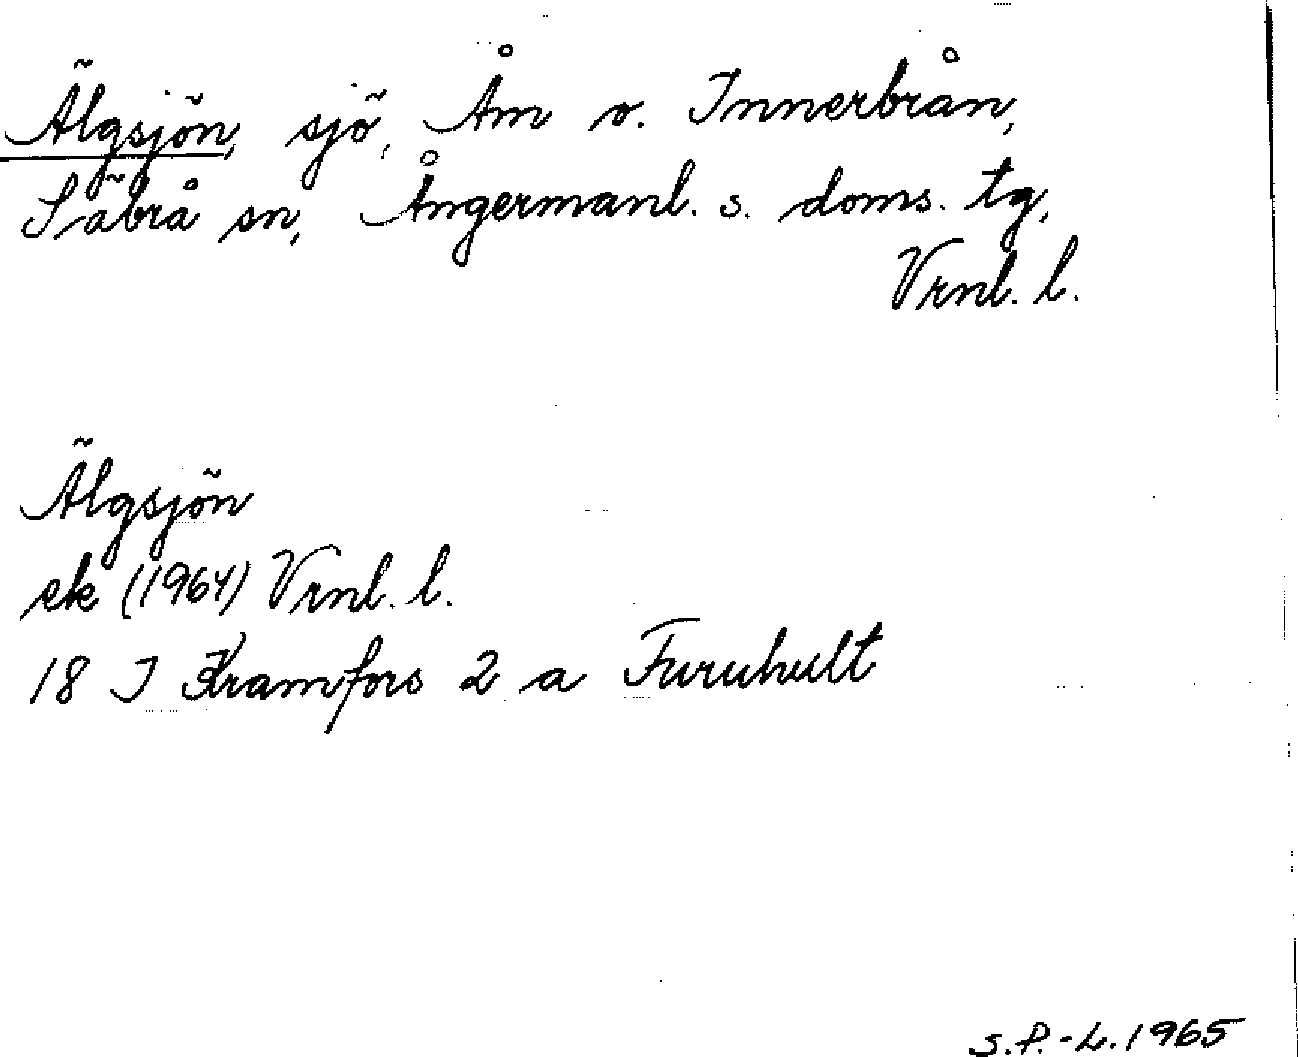 Älgsjön, sjö, Åm v. Innerbrån,
Säbrå sn, Ångermanl. s. doms. tg,
Vrnl. l.
Älgsjön
ek (1964) Vrnl. l.
18 I Kramfors 2 a Furuhult
S.P.-L. 1965